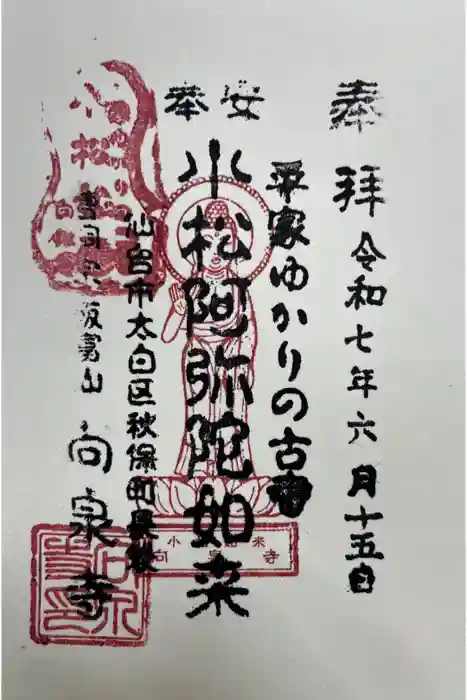 奉拝 令和七年六月十五日
平家ゆかりの古
安奉
小松阿弥陀如来
仙台市太白区秋保町
向泉寺
小 如来
向泉寺
小松